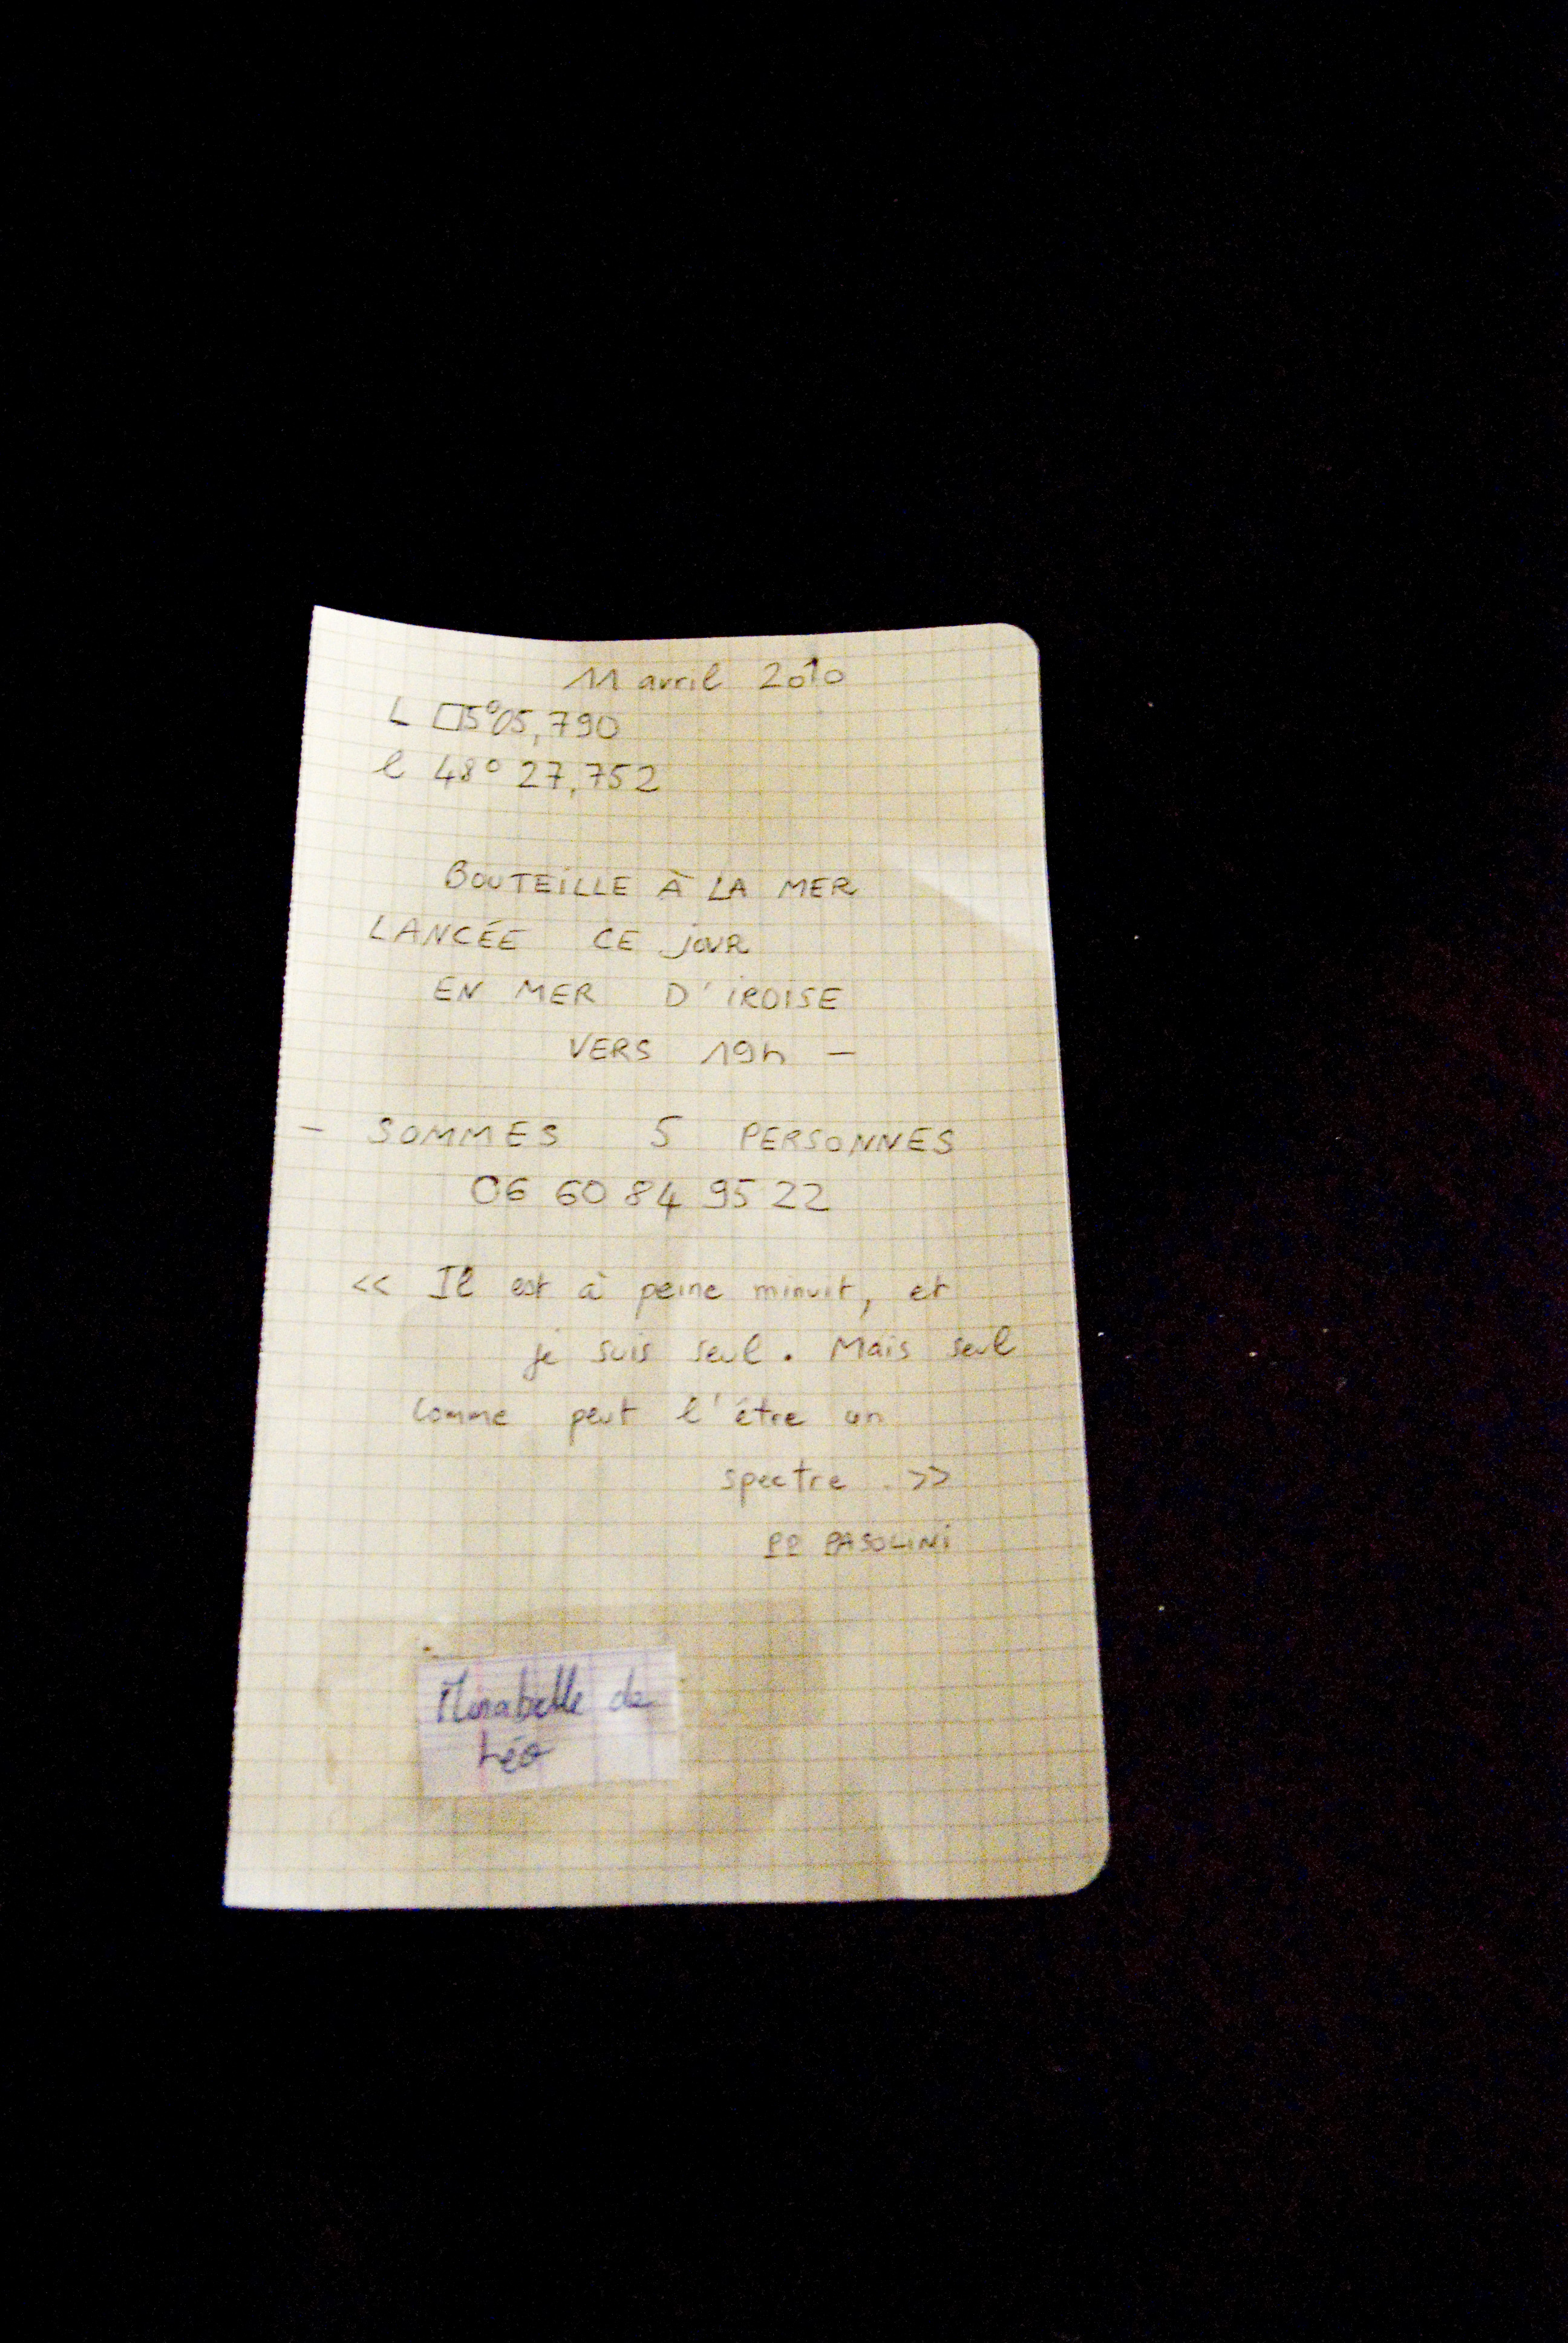 11 avril 2010
L 5°05,790
l 48° 27,752
BOUTEILLE À LA MER
LANCÉE CE jOUR
EN MER D'IROISE
VERS 19h —
- SOMMES 5 PERSONNES
06 60 84 95 22
<< Il est à peine minuit, et
je suis seul. Mais seul
comme peut l'être un
spectre. >>
PP PASOLINI
Mirabelle de
Léo